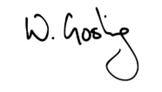 W. Gosling